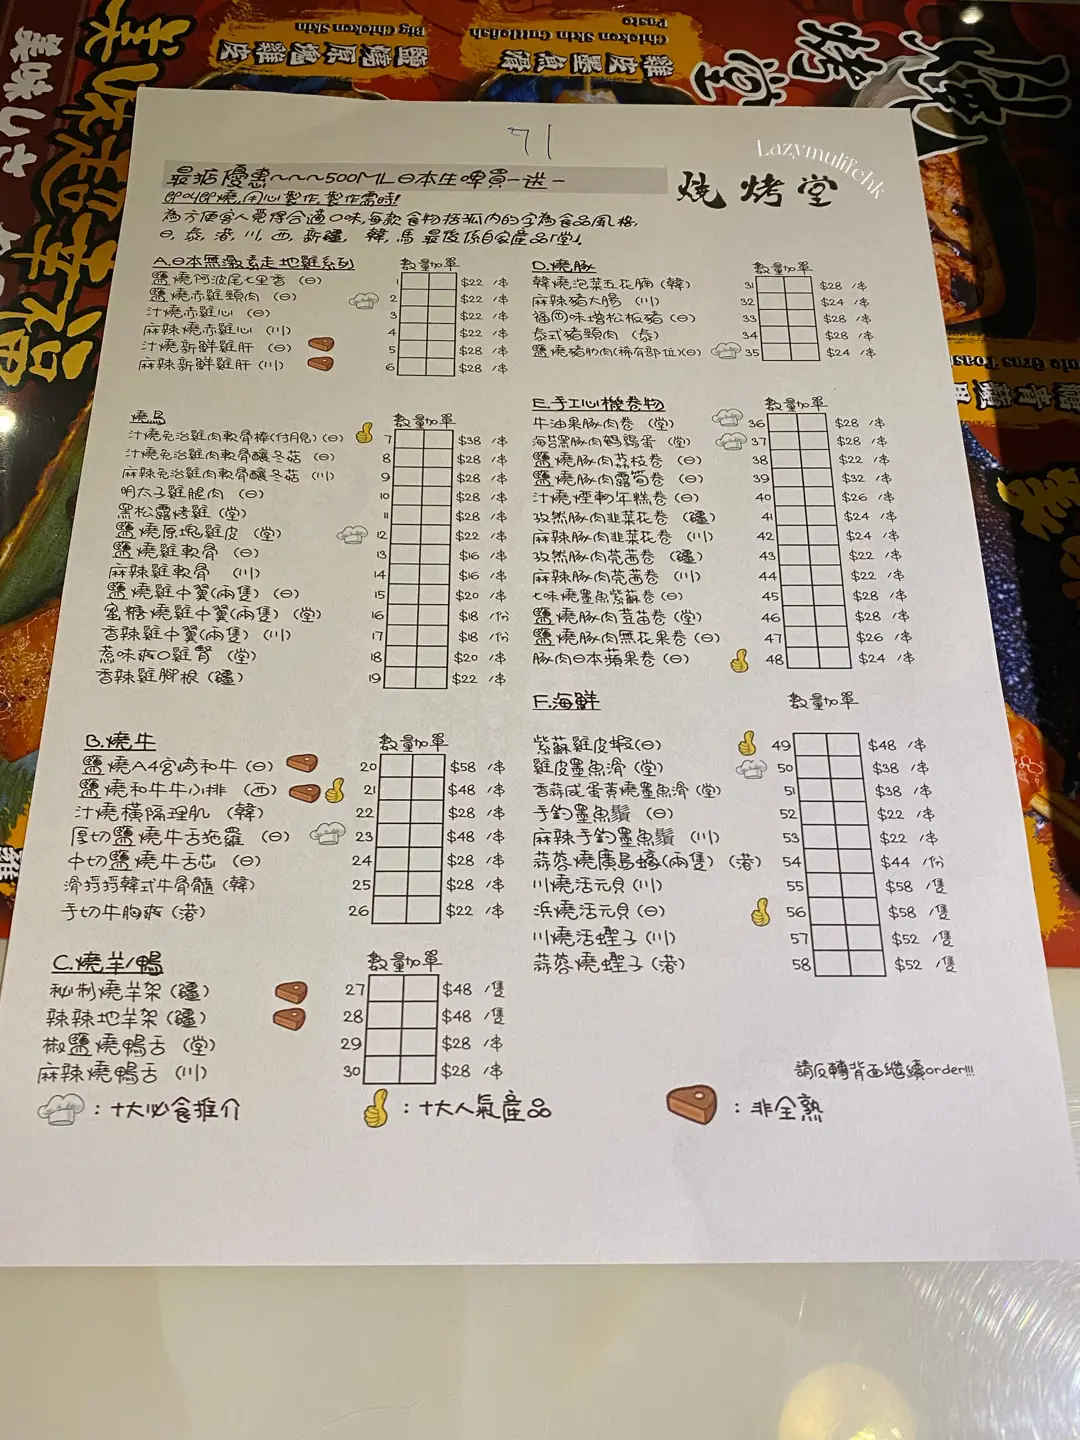 71
Lazymulifehk
燒烤堂
最掂優惠~~~500ML日本生啤買一送一
即叫即燒,用心製作,製作需時!
為方便客人覓得合適口味,每款食物括弧內的字為食品風格,
日, 泰, 港, 川, 西, 新疆, 韓, 馬 最後係自家產品「堂」
A.日本無激素走地雞系列 數量加單
鹽燒阿波尾七里香 (日) 1 $22 /串
鹽燒赤雞頸肉 (日) 2 $22 /串
汁燒赤雞心 (日) 3 $22 /串
麻辣燒赤雞心 (川) 4 $22 /串
汁燒新鮮雞肝 (日) 5 $28 /串
麻辣新鮮雞肝 (川) 6 $28 /串
燒鳥 數量加單
汁燒免治雞肉軟骨棒(付月見) (日) 7 $38 /串
汁燒免治雞肉軟骨釀冬菇 (日) 8 $28 /串
麻辣免治雞肉軟骨釀冬菇 (川) 9 $28 /串
明太子雞腿肉 (日) 10 $28 /串
黑松露烤雞 (堂) 11 $28 /串
鹽燒原塊雞皮 (堂) 12 $22 /串
鹽燒雞軟骨 (日) 13 $16 /串
麻辣雞軟骨 (川) 14 $16 /串
鹽燒雞中翼(兩隻) (日) 15 $20 /串
蜜糖燒雞中翼(兩隻) (堂) 16 $18 /份
香辣雞中翼(兩隻) (川) 17 $18 /份
惹味爽口雞腎 (堂) 18 $20 /串
香辣雞腳根 (疆) 19 $22 /串
B.燒牛 數量加單
鹽燒A4宮崎和牛 (日) 20 $58 /串
鹽燒和牛牛小排 (西) 21 $48 /串
汁燒橫隔理肌 (韓) 22 $28 /串
厚切鹽燒牛舌拖羅 (日) 23 $48 /串
中切鹽燒牛舌芯 (日) 24 $28 /串
滑捋捋韓式牛骨髓 (韓) 25 $28 /串
手切牛胸爽 (港) 26 $22 /串
C.燒羊/鴨 數量加單
秘制燒羊架 (疆) 27 $48 /隻
辣辣地羊架 (疆) 28 $48 /隻
椒鹽燒鴨舌 (堂) 29 $28 /串
麻辣燒鴨舌 (川) 30 $28 /串
D.燒豚 數量加單
韓燒泡菜五花腩 (韓) 31 $28 /串
麻辣豬大腸 (川) 32 $24 /串
福岡味增松板豬 (日) 33 $28 /串
泰式豬頸肉 (泰) 34 $28 /串
鹽燒豬肋肉(稀有部位)(日) 35 $24 /串
E.手工心機卷物 數量加單
牛油果豚肉卷 (堂) 36 $28 /串
海苔黑豚肉鵪鶉蛋 (堂) 37 $28 /串
鹽燒豚肉荔枝卷 (日) 38 $22 /串
鹽燒豚肉露筍卷 (日) 39 $32 /串
汁燒煙鴨年糕卷 (日) 40 $26 /串
孜然豚肉韭菜花卷 (疆) 41 $24 /串
麻辣豚肉韭菜花卷 (川) 42 $24 /串
孜然豚肉莞茜卷 (疆) 43 $22 /串
麻辣豚肉莞茜卷 (川) 44 $22 /串
七味燒墨魚紫蘇卷 (日) 45 $28 /串
鹽燒豚肉荳苗卷 (堂) 46 $28 /串
鹽燒豚肉無花果卷 (日) 47 $26 /串
豚肉日本蘋果卷 (日) 48 $24 /串
F.海鮮 數量加單
紫蘇雞皮蝦(日) 49 $48 /串
雞皮墨魚滑 (堂) 50 $38 /串
香蒜咸蛋黃燒墨魚滑 (堂) 51 $38 /串
手釣墨魚鬚 (日) 52 $22 /串
麻辣手釣墨魚鬚 (川) 53 $22 /串
蒜蓉燒廣島蠔(兩隻) (港) 54 $44 /份
川燒活元貝 (川) 55 $58 /隻
浜燒活元貝 (日) 56 $58 /隻
川燒活蟶子 (川) 57 $52 /隻
蒜蓉燒蟶子 (港) 58 $52 /隻
請反轉背面繼續order!!!
: 十大必食推介
: 十大人氣產品
: 非全熟
鹽燒原塊雞皮
Big Chicken Skin
雞皮墨魚滑
Chicken Skin Cuttlefish
Paste
燒烤堂